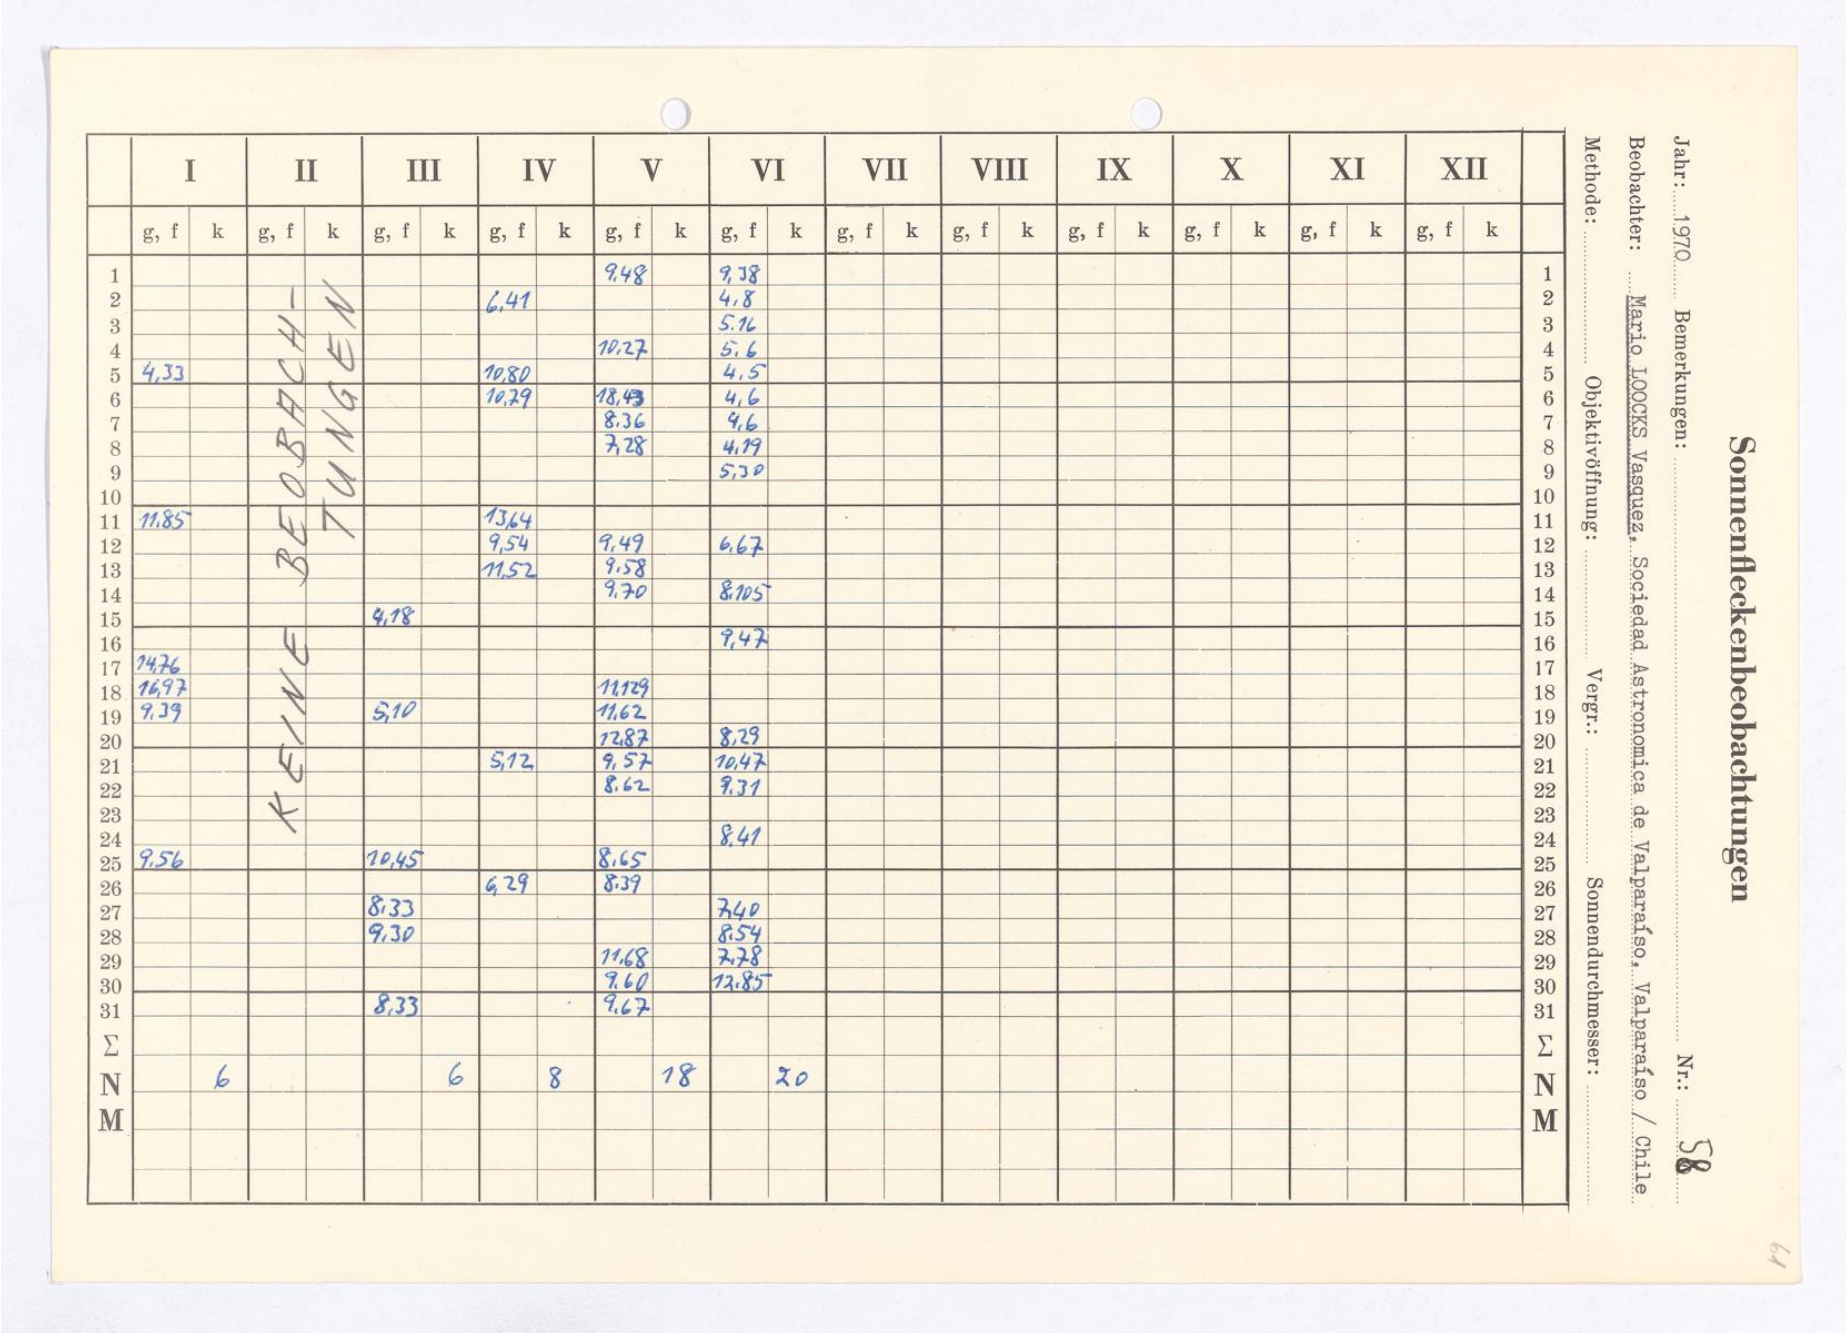 Sonnenfleckenbeobachtungen
Jahr: 1970 Bemerkungen: Nr.: 58
Beobachter: Mario LOOCKS Vasquez, Sociedad Astronomica de Valparaíso, Valparaíso / Chile
Methode: Objektivöffnung: Vergr.: Sonnendurchmesser:
I II III IV V VI VII VIII IX X XI XII
g, f k g, f k g, f k g, f k g, f k g, f k g, f k g, f k g, f k g, f k g, f k g, f k
KEINE BEOBACH-
TUNGEN
1 9,48 9,38 1
2 6,41 4,8 2
3 5.16 3
4 10,27 5,6 4
5 4,33 10,80 4,5 5
6 10,29 18,43 4,6 6
7 8,36 4,6 7
8 7,28 4,19 8
9 5,30 9
10 10
11 11,85 13,64 11
12 9,54 9,49 6,67 12
13 11,52 9,58 13
14 9,70 8,105 14
15 4,18 15
16 9,47 16
17 14,76 17
18 16,97 11,129 18
19 9,39 5,10 11,62 19
20 12,87 8,29 20
21 5,12 9,57 10,47 21
22 8,62 9,31 22
23 23
24 8,41 24
25 9,56 10,45 8,65 25
26 6,29 8,39 26
27 8,33 7,40 27
28 9,30 8,54 28
29 11,68 7,78 29
30 9,60 12,85 30
31 8,33 9,67 31
Σ Σ
N 6 6 8 18 20 N
M M
61